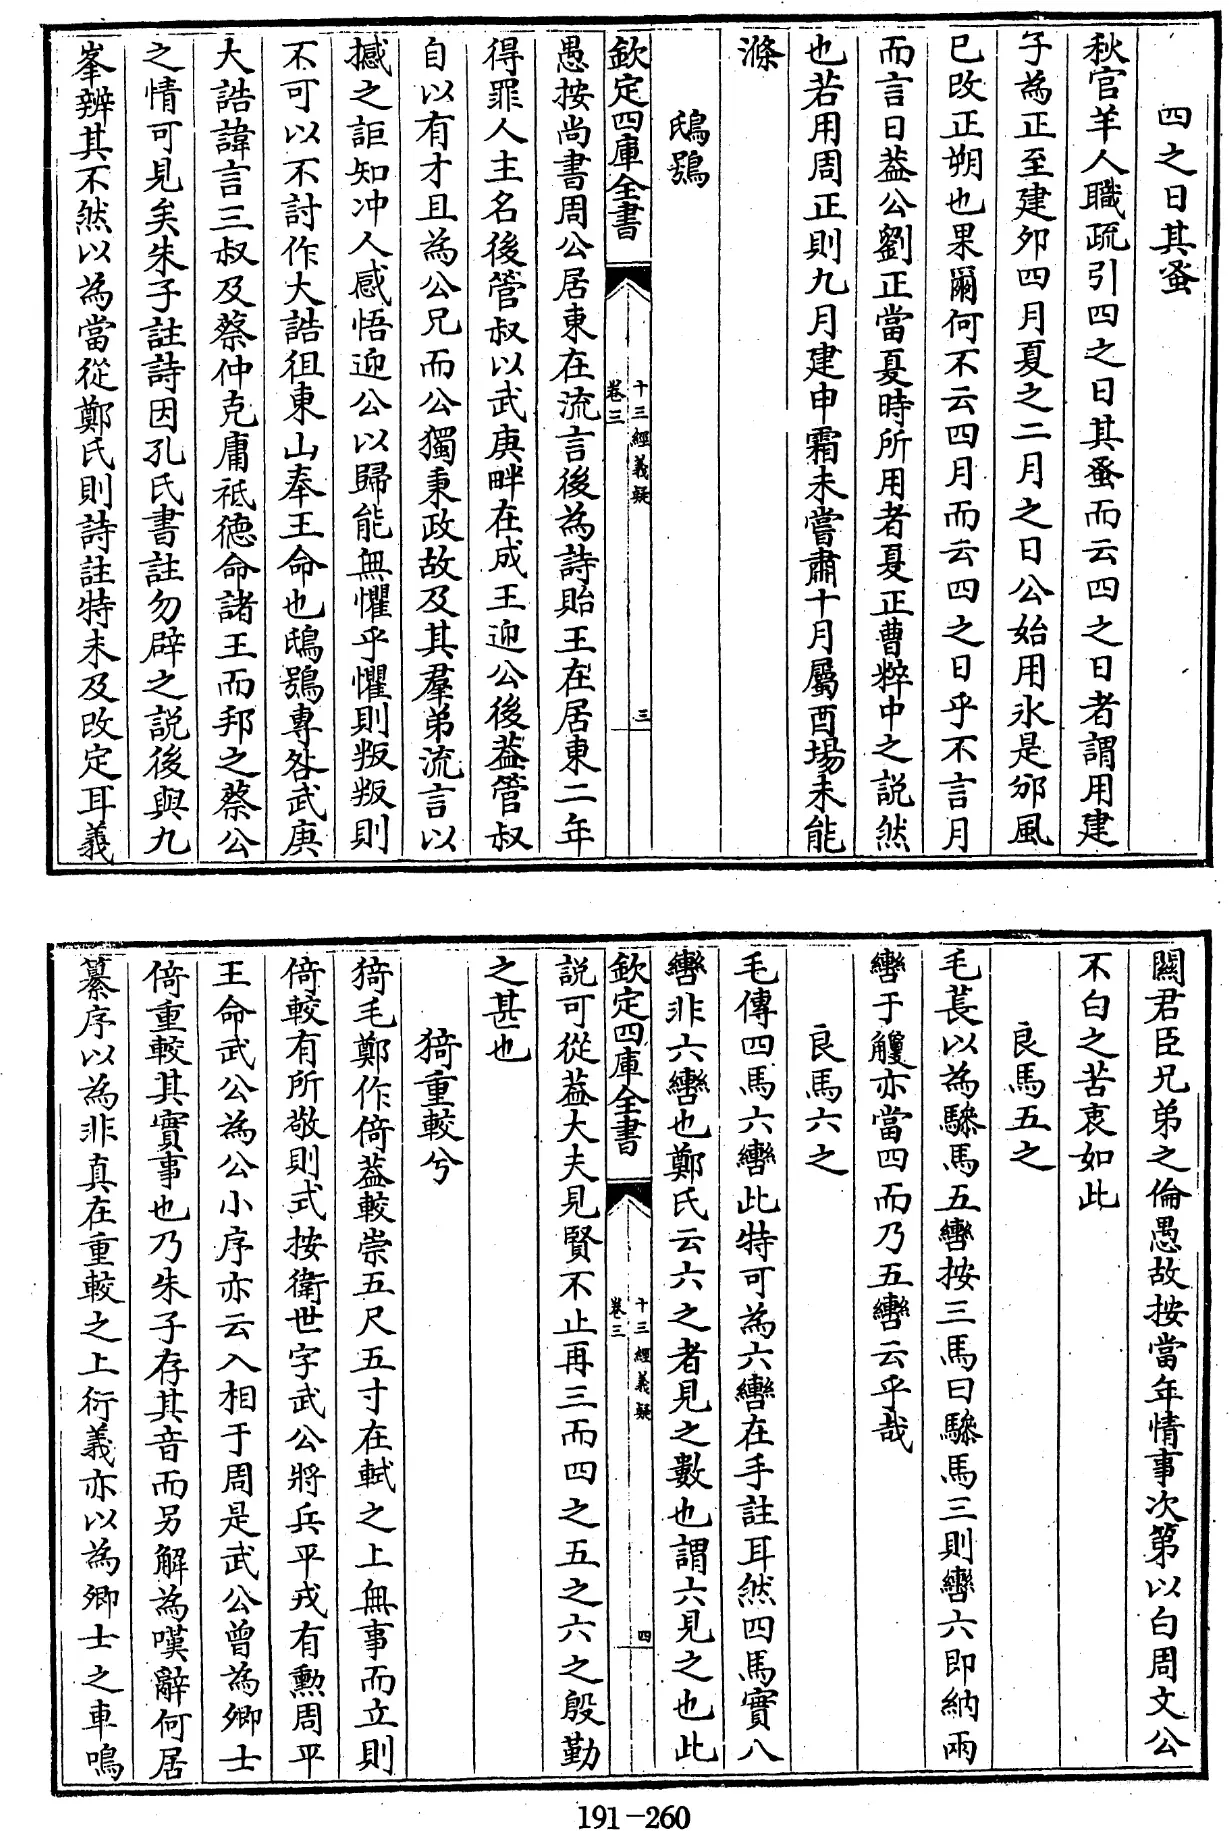 四之日其蚤
秋官羊人職疏引四之日其蚤而云四之日者謂用建
子為正至建夘四月夏之二月之日公始用氷是邠風
已改正朔也果爾何不云四月而云四之日乎不言月
而言日葢公劉正當夏時所用者夏正曹粹中之説然
也若用周正則九月建申霜未嘗肅十月屬酉場未能
滌
鴟鴞
欽定四庫全書
十三經義疑
卷三
三
愚按尚書周公居東在流言後為詩貽王在居東二年
得罪人主名後管叔以武庚畔在成王迎公後葢管叔
自以有才且為公兄而公獨秉政故及其羣弟流言以
撼之詎知冲人感悟迎公以歸能無懼乎懼則叛叛則
不可以不討作大誥徂東山奉王命也鴟鴞専咎武庚
大誥諱言三叔及蔡仲克庸祗德命諸王而邦之蔡公
之情可見矣朱子註詩因孔氏書註勿辟之説後與九
峯辨其不然以為當從鄭氏則詩註特未及改定耳義
闗君臣兄弟之倫愚故按當年情事次第以白周文公
不白之苦衷如此
良馬五之
毛萇以為驂馬五轡按三馬曰驂馬三則轡六即納兩
轡于觼亦當四而乃五轡云乎哉
良馬六之
毛傳四馬六轡此特可為六轡在手註耳然四馬實八
轡非六轡也鄭氏云六之者見之數也謂六見之也此
欽定四庫全書
十三經義疑
卷三
四
説可從葢大夫見賢不止再三而四之五之六之殷勤
之甚也
猗重較兮
猗毛鄭作倚葢較崇五尺五寸在軾之上無事而立則
倚較有所敬則式按衛世字武公將兵平戎有勲周平
王命武公為公小序亦云入相于周是武公曾為卿士
倚重較其實事也乃朱子存其音而另解為嘆辭何居
纂序以為非真在重較之上衍義亦以為卿士之車鳴
191-260